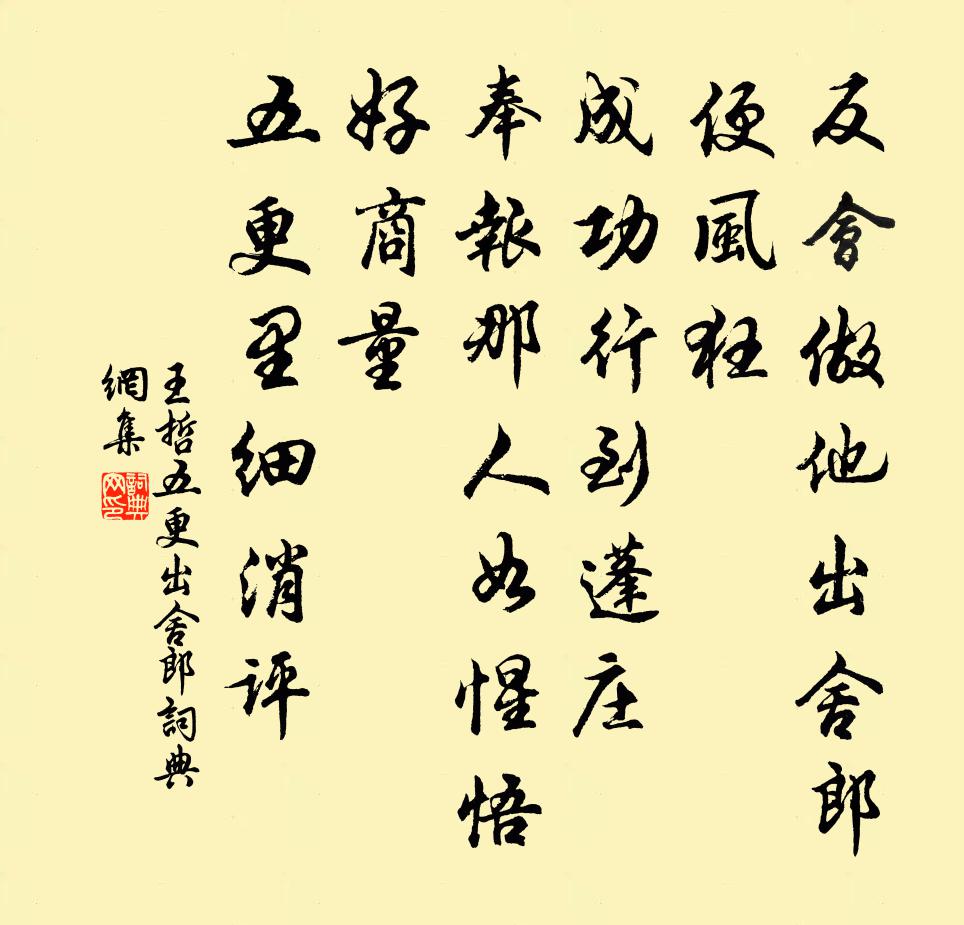 反會做他出舍郎
便風狂
成功行到蓬庄
奉報那人如惺悟
好商量
五更里細消評
王哲五更出舍郎詞典
網集
詞典
网印